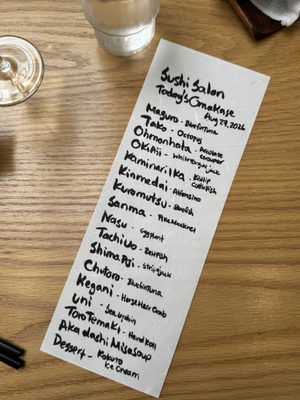 Sushi Salon
Today's Omakase
Aug 29, 2026
Maguro - Bluefin Tuna
Tako - Octopus
Ohmonhata -
Okiaji - Whitetongue jack
Kaminari Ika - Kisslip Cuttlefish
Kinmedai - Alfonsino
Kuromutsu - Bluefish
Sanma - Pike Mackerel
Nasu - Eggplant
Tachiuo - Beltfish
Shima Aji - Stripejack
Chutoro - Bluefin Tuna
Kegani - Horse Hair Crab
Uni - Sea Urchin
Toro Temaki - Hand Roll
Aka dashi Miso soup
Dessert - Kokuto
Ice Cream